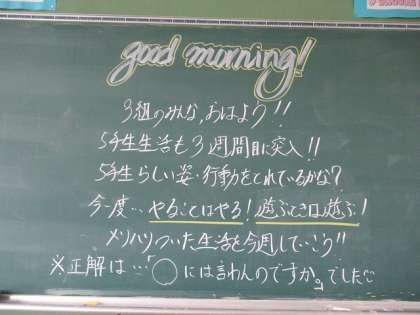 good morning!
3組のみんな,おはよう!!
5年生生活も3週間目に突入!!
5年生らしい姿・行動をとれているかな?
今一度…やることはやる!遊ぶときは遊ぶ!
メリハリついた生活を今週していこう!!
※正解は…「◯には言わんのですか。でした